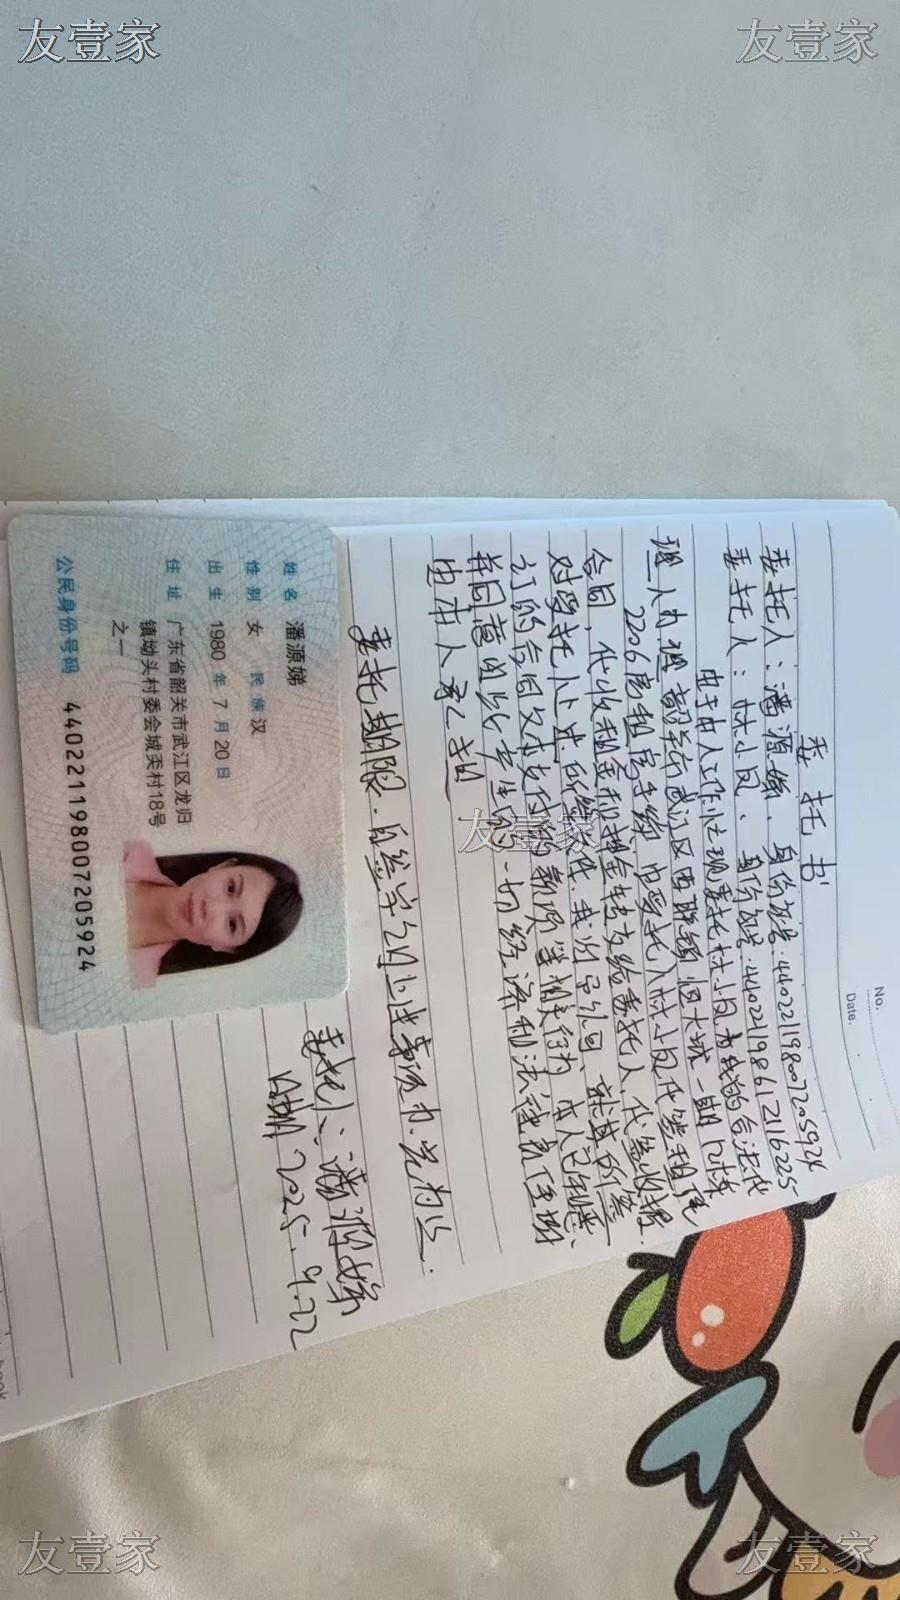 友壹家
友壹家
No.
Date.
委托书
委托人：潘源娣、身份证号:440221198007205924
委托人：林小凤、身份证号:440221198612116225
由于本人工作忙现委托林小凤为我的合法代
理人办理韶关市武江区西联镇恒大城一期12栋
2206房租房手续 由受托人林小凤代签租赁
合同，代收租金和押金转支给委托人，代签收据.
对受托人
订的合同又本支付的款项等相关行为，本人已知悉、
并同意因此产生的一切经济和法律责任均
由本人承担
委托期限：自签字之日止事项办完为止.
委托人：潘源娣
2025.9.22
姓名 潘源娣
性别 女 民族 汉
出生 1980 年 7 月 20 日
住址 广东省韶关市武江区龙归
镇坳头村委会城夫村18号
之一
公民身份号码 440221198007205924
友壹家
友壹家
友壹家